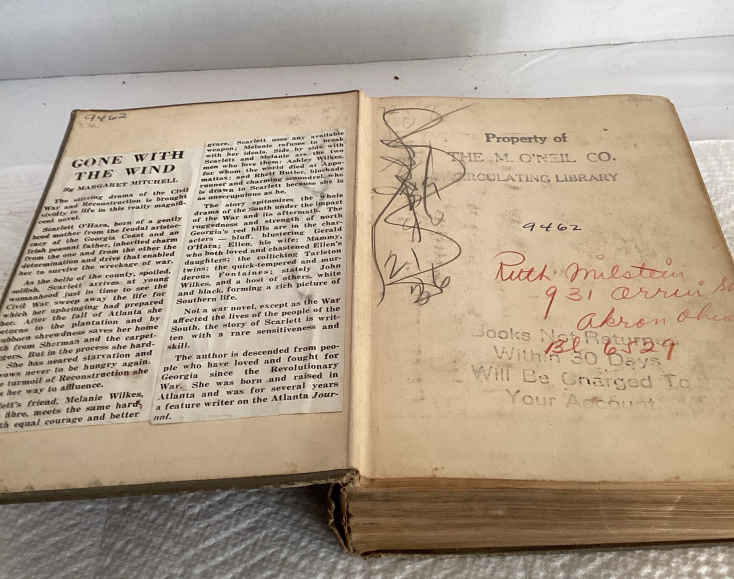 9462
GONE WITH
THE WIND
By MARGARET MITCHELL
The stirring drama of the Civil
War and Reconstruction is brought
vividly to life in this really magnifi-
cent novel.
Scarlett O'Hara, born of a gently
bred mother from the feudal aristoc-
racy of the Georgia Coast and an
Irish peasant father, inherited charm
from the one and from the other the
determination and drive that enabled
her to survive the wreckage of war.
As the belle of the county, spoiled,
selfish, Scarlett arrives at young
womanhood just in time to see the
Civil War sweep away the life for
which her upbringing had prepared
her. After the fall of Atlanta she
returns to the plantation and by
stubborn shrewdness saves her home
from Sherman and the carpet-
But in the process she hard-
She has neared starvation and
vows never to be hungry again.
turmoil of Reconstruction she
her way to affluence.
friend, Melanie Wilkes,
fibre, meets the same hard-
equal courage and better
grace. Scarlett uses any available
weapon; Melanie refuses to break
with her ideals. Side by side with
Scarlett and Melanie are the two
men who love them: Ashley Wilkes,
for whom the world died at Appo-
mattax; and Rhett Butler, blockade
runner and charming scoundrel, who
is drawn to Scarlett because she is
as unscrupulous as he.
The story epitomizes the whole
drama of the South under the impact
of the War and its aftermath. The
ruggedness and strength of north
Georgia's red hills are in the char-
acters — bluff, blustering Gerald
O'Hara; Ellen, his wife; Mammy,
who both loved and chastened Ellen's
daughters; the rollicking Tarleton
twins; the quick-tempered and mur-
derous Fontaines; stately John
Wilkes, and a host of others, white
and black, forming a rich picture of
Southern life.
Not a war novel, except as the War
affected the lives of the people of the
South, the story of Scarlett is writ-
ten with a rare sensitiveness and
skill.
The author is descended from peo-
ple who have loved and fought for
Georgia since the Revolutionary
War. She was born and raised in
Atlanta and was for several years
a feature writer on the Atlanta Jour-
nal.
Property of
THE M. O'NEIL CO.
CIRCULATING LIBRARY
9462
Ruth Milstein
931 Orrin St
Akron Ohio
Bl 6829
Books Not Returned
Within 30 Days
Will Be Charged To
Your Account